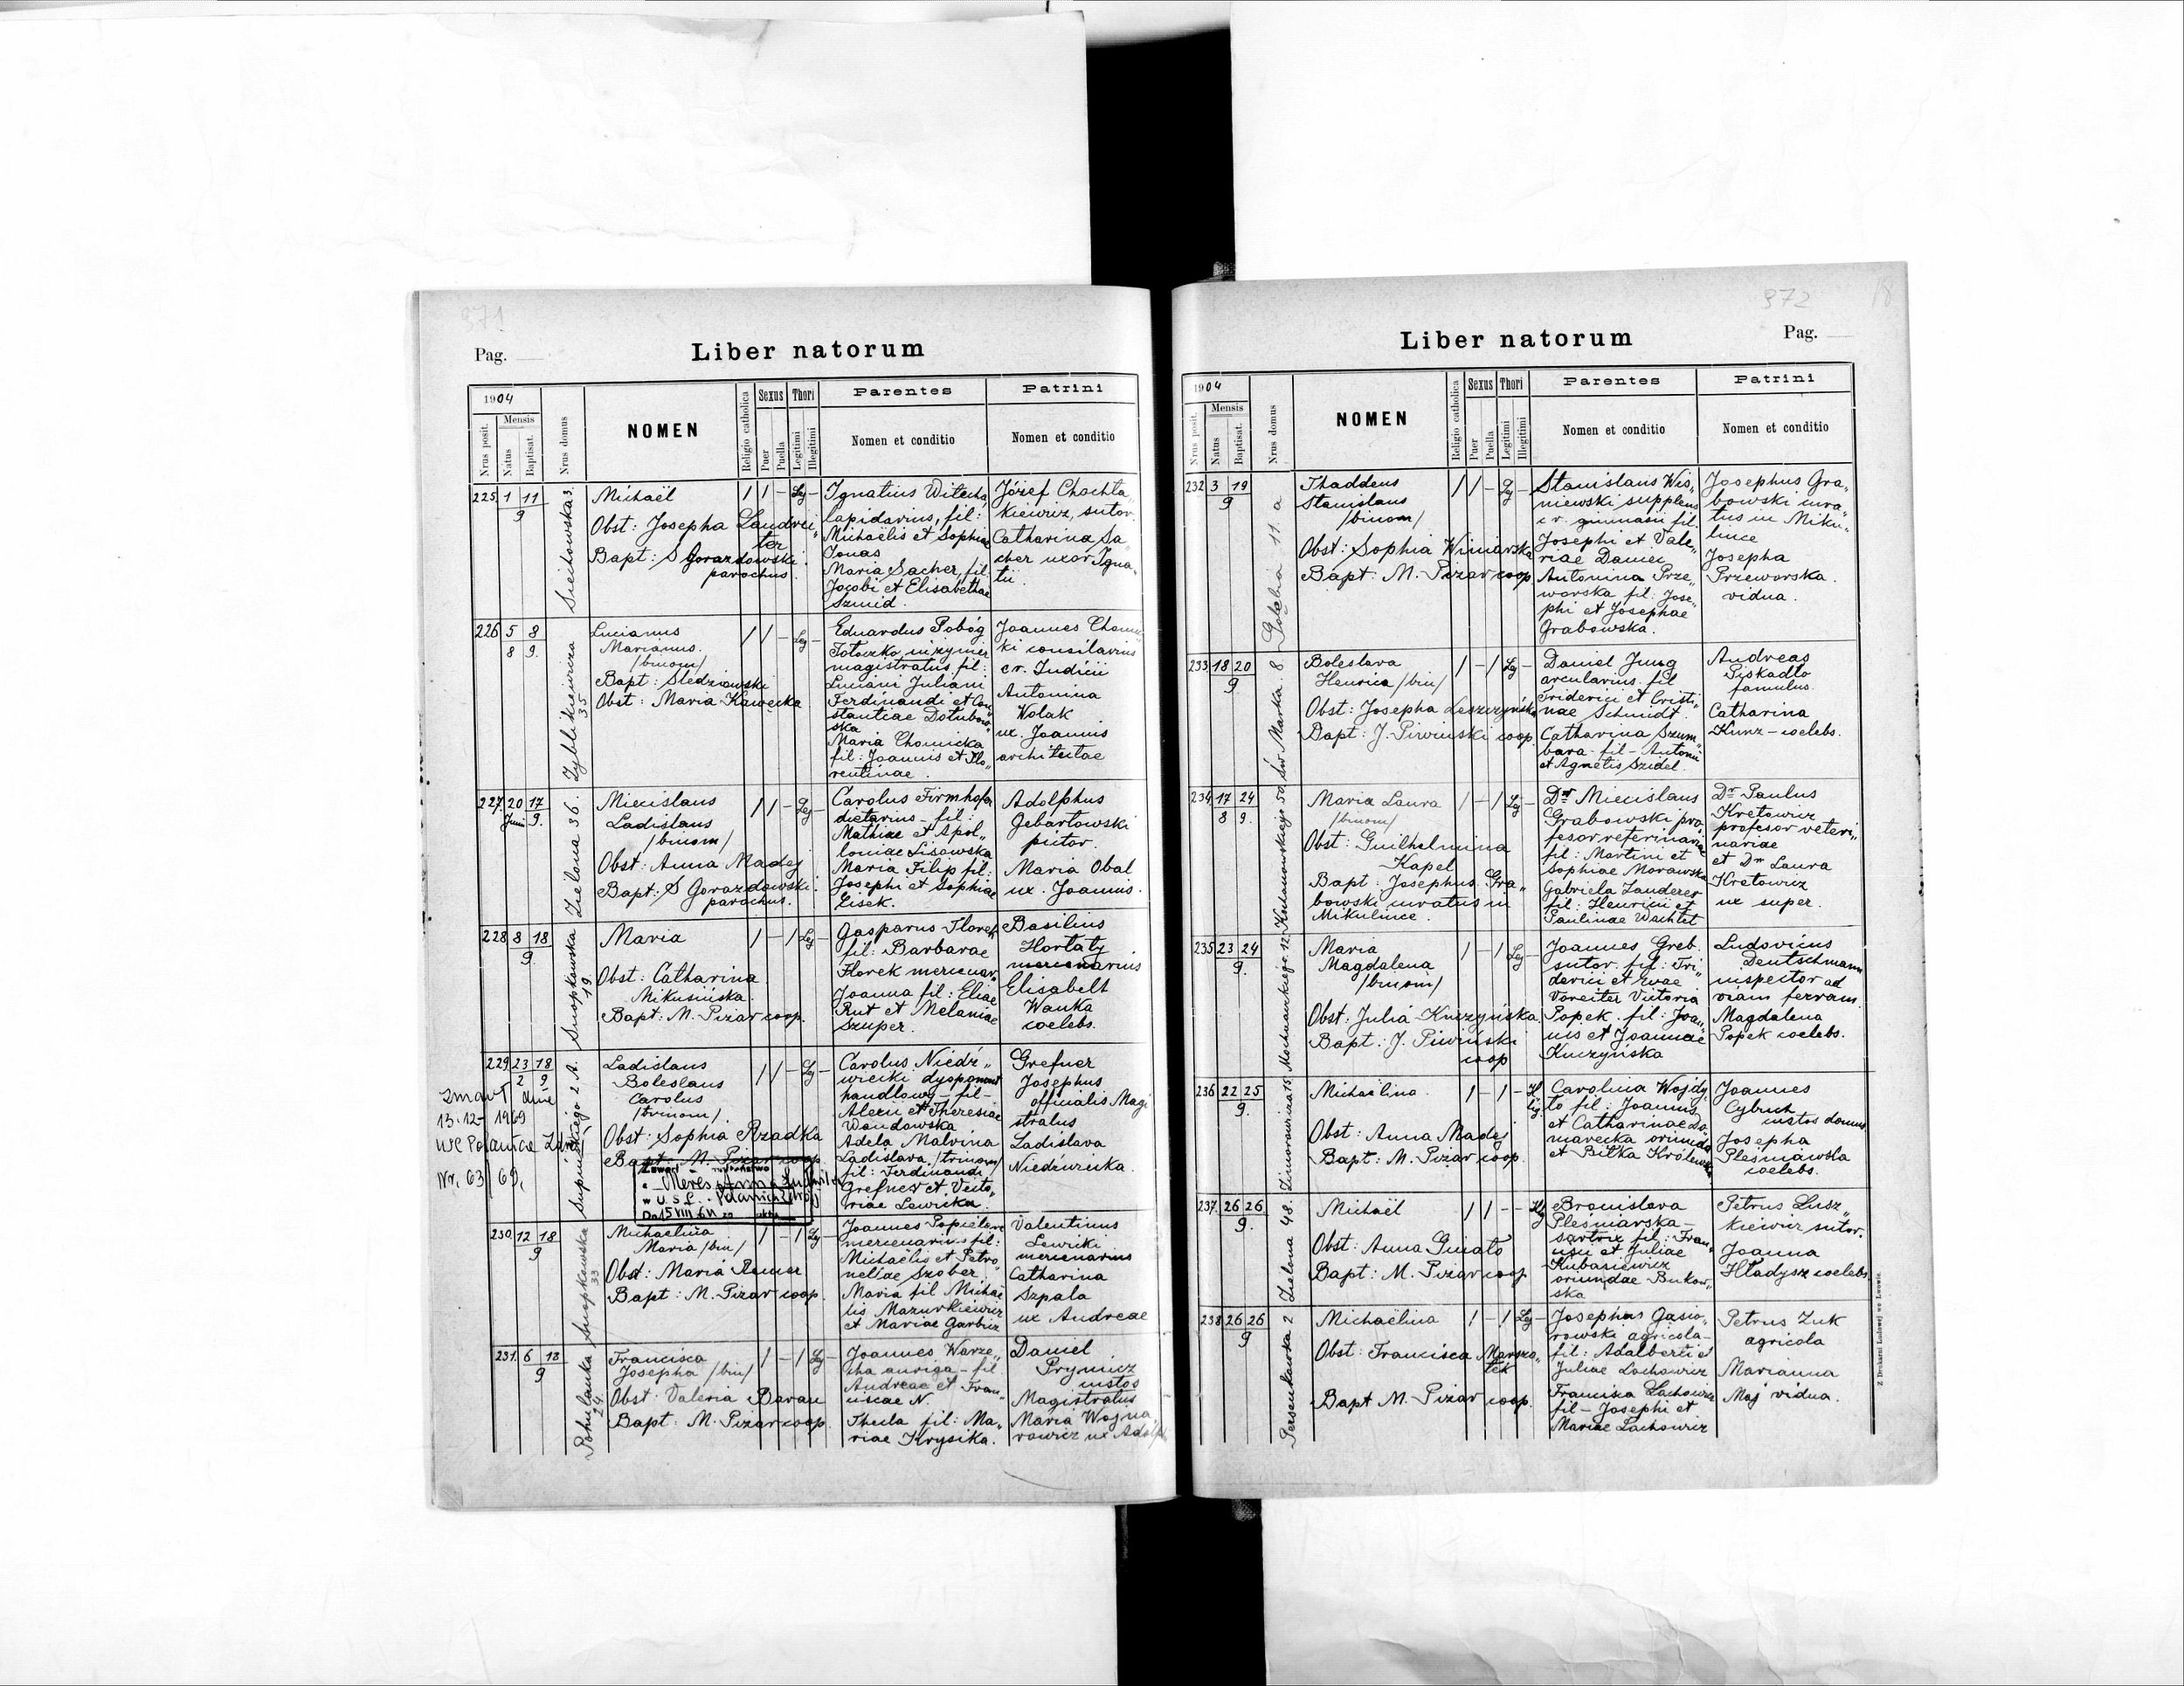 971
Pag.
Liber natorum
1904
Nrus posit.
Mensis
Natus
Baptisat.
Nrus domus
NOMEN
Religio catholica
Sexus
Puer
Puella
Thori
Legitimi
Illegitimi
Parentes
Nomen et conditio
Patrini
Nomen et conditio
225 1 11
9
Michaël
Obst: Josepha Landrei„
ter
Bapt: S Gorazdowski
parochus.
1 1 - Leg -
Ignatius Witecha
lapidarius, fil:
Michaëlis et Sophiae
Jonas
Maria Sacher, fil.
Jacobi et Elisabethae
Szmid.
Józef Chochla„
kiewicz, sutor.
Catharina Sa„
cher uxor Igna„
tii.
226 5 8
8 9.
Zyblikiewicza
35
Lucianus
Marianus.
/binom/
Bapt: Śledziowski
Obst: Maria Kawecka
1 1 - Leg -
Eduardus Pobóg
magistratus fil:
Luciani Juliani
Ferdinandi et Con„
stantiae
ska
Maria Chomicka
fil: Joannis et Flo„
rentinae.
ki consiliarius
c.r. Judicii
Antonina
Wolak
ux. Joannis
architectae
227. 20 17
Junii 9.
Zielona 36.
Miecislaus
Ladislaus
/binom/
Obst: Anna Madej
Bapt: S Gorazdowski
parochus.
1 1 - Leg -
Carolus Firmhofer
dietarius - fil:
Mathiae et Apol„
loniae Lisowska
Maria Filip fil:
Josephi et Sophiae
Lisek.
Adolphus
Gebartowski
pictor.
Maria Obal
ux. Joannis.
228 8 18
9
Snopkowska
19.
Maria
Obst: Catharina
Mikusińska.
Bapt: M. Pizar coop.
1 - 1 Leg -
Gasparus Florek
fil: Barbarae
Florek mercenar„
Joanna fil: Eliae
Rut et Melaniae
Szuper.
Basilius
Hortaty
mercenarius
Elisabelt
Wanka
coelebs.
229 23 18
2 9
zmarł dnia
13.12-1969
we Polanica Zdrój
Nr. 63/69.
Supińskiego 2 A.
Ladislaus
Boleslaus
Carolus
/trinom/
Obst: Sophia Rzadka
Bapt: M. Pizar coop.
1 1 - Leg -
Carolus Niedź„
wiecki dysponent
handlowy - fil -
Alexii et Theresiae
Wandowska
Adela Malvina
Ladislava /trinom/
fil: Ferdinandi
Grefner et Victo„
riae Lewicka.
Grefner
Josephus
officialis Magi
stratus
Ladislava
Niedźwiecka.
230. 12 18
9
Snopkowska
33
Michaëlina
Maria /bin/
Obst: Maria Remer
Bapt: M. Pizar coop.
1 - 1 Leg -
mercenarius fil:
Michaëlis et Petro„
neliae Szober
Maria fil Michae
lis Mazurkiewicz
et Mariae Garbicz
Valentinus
Lewicki
mercenarius
Catharina
Szpala
ux Andreae
231. 6 18
9
Pohulanka
24.
Francisca
Josepha /bin/
Obst: Valeria Baran
Bapt: M. Pizar coop.
1 - 1 Leg -
Joannes Warze„
cha auriga - fil
Andreae et Fran„
ciscae N.
Thecla fil: Ma„
riae Krysika.
Daniel
Prymicz
custos
Magistratus
Maria Wojna„
rowicz ux Adolph
972
Liber natorum
Pag.
1904
Nrus posit.
Mensis
Natus
Baptisat.
Nrus domus
NOMEN
Religio catholica
Sexus
Puer
Puella
Thori
Legitimi
Illegitimi
Parentes
Nomen et conditio
Patrini
Nomen et conditio
232 3 19
9
Gołębia 11. a
Thaddeus
Stanislaus
/binom/
Obst: Sophia Winiarska
Bapt: M. Pizar coop.
1 1 - Leg -
Stanislaus Wis„
niewski supplens
c.r. gimnasii fil.
Josephi et Vale„
riae Daniec
Antonina Prze„
worska fil: Jose„
phi et Josephae
Grabowska.
Josephus Gra„
bowski cura„
tus in Miku„
lince
Josepha
Przeworska.
vidua.
233. 18 20
9
Św. Marka. 8
Boleslava
Henrica /bin/
Obst: Josepha Leszczyńska
Bapt: J. Piwiński coop.
1 - 1 Leg -
Daniel Jung
arcularius. fil
Friderici et Cristi„
nae Schmidt.
Catharina Szum„
bara - fil - Antonii
et Agnetis Szidel.
Andreas
Piskadło
famulus.
Catharina
Kunz - coelebs.
234 17 24
8 9.
Maria Laura
/binom/
Obst: Guilhelmina
Kapel
Bapt: Josephus Gra„
bowski curatus in
Mikulince.
1 - 1 Leg -
Dr Miecislaus
Grabowski pro„
fesor veterinariae
fil: Martini et
Sophiae Morawska
Gabriela Zanderer
fil: Henrici et
Paulinae Wachtel
Dr Paulus
Kretowicz
profesor veteri„
nariae
et Dr Laura
Kretowicz
ux super.
235 23 24
9.
Mochnackiego 12.
Maria
Magdalena
/binom/
Obst: Julia Kuczyńska.
Bapt: J. Piwiński
coop
1 - 1 Leg -
Joannes Greb.
sutor. fil: Fri„
derici et Evae
Voreiter Victoria
Popek. fil: Joa„
nis et Joannae
Kuczyńska
Ludovicus
Deutschmann
inspector ad
viam ferram.
Magdalena
Popek coelebs.
236 22 25
9.
Zimorowicza 15.
Michaëlina
Obst: Anna Madej
Bapt: M. Pizar coop.
1 - 1 -
Carolina Wojdy„
ło fil: Joannis
et Catharinae Do„
marecka oriunda
et Biłka Królewska
Joannes
Cybuch
custos domus
Josepha
Pleśniarska
coelebs.
237. 26 26
9.
Zielona 48.
Michaël
Obst: Anna Gniato
Bapt: M. Pizar coop
1 1 - -
Bronislava
Pleśniarska -
sartrix fil: Fran„
cisci et Juliae
Kubasiewicz
oriundae Bukow„
ska
Petrus Lusz„
kiewicz sutor.
Joanna
Hładysz coelebs.
238 26 26
9
Persenkowka 2
Michaëlina
Obst: Francisca Marsza„
łek
Bapt M. Pizar coop.
1 - 1 Leg -
Josephus Gąsio„
rowski agricola -
fil: Adalberti et
Juliae Lachowicz
Francisca Lachowicz
fil - Josephi et
Mariae Lachowicz
Petrus Żuk
agricola
Marianna
Maj vidua.
Z Drukarni Ludowej we Lwowie.